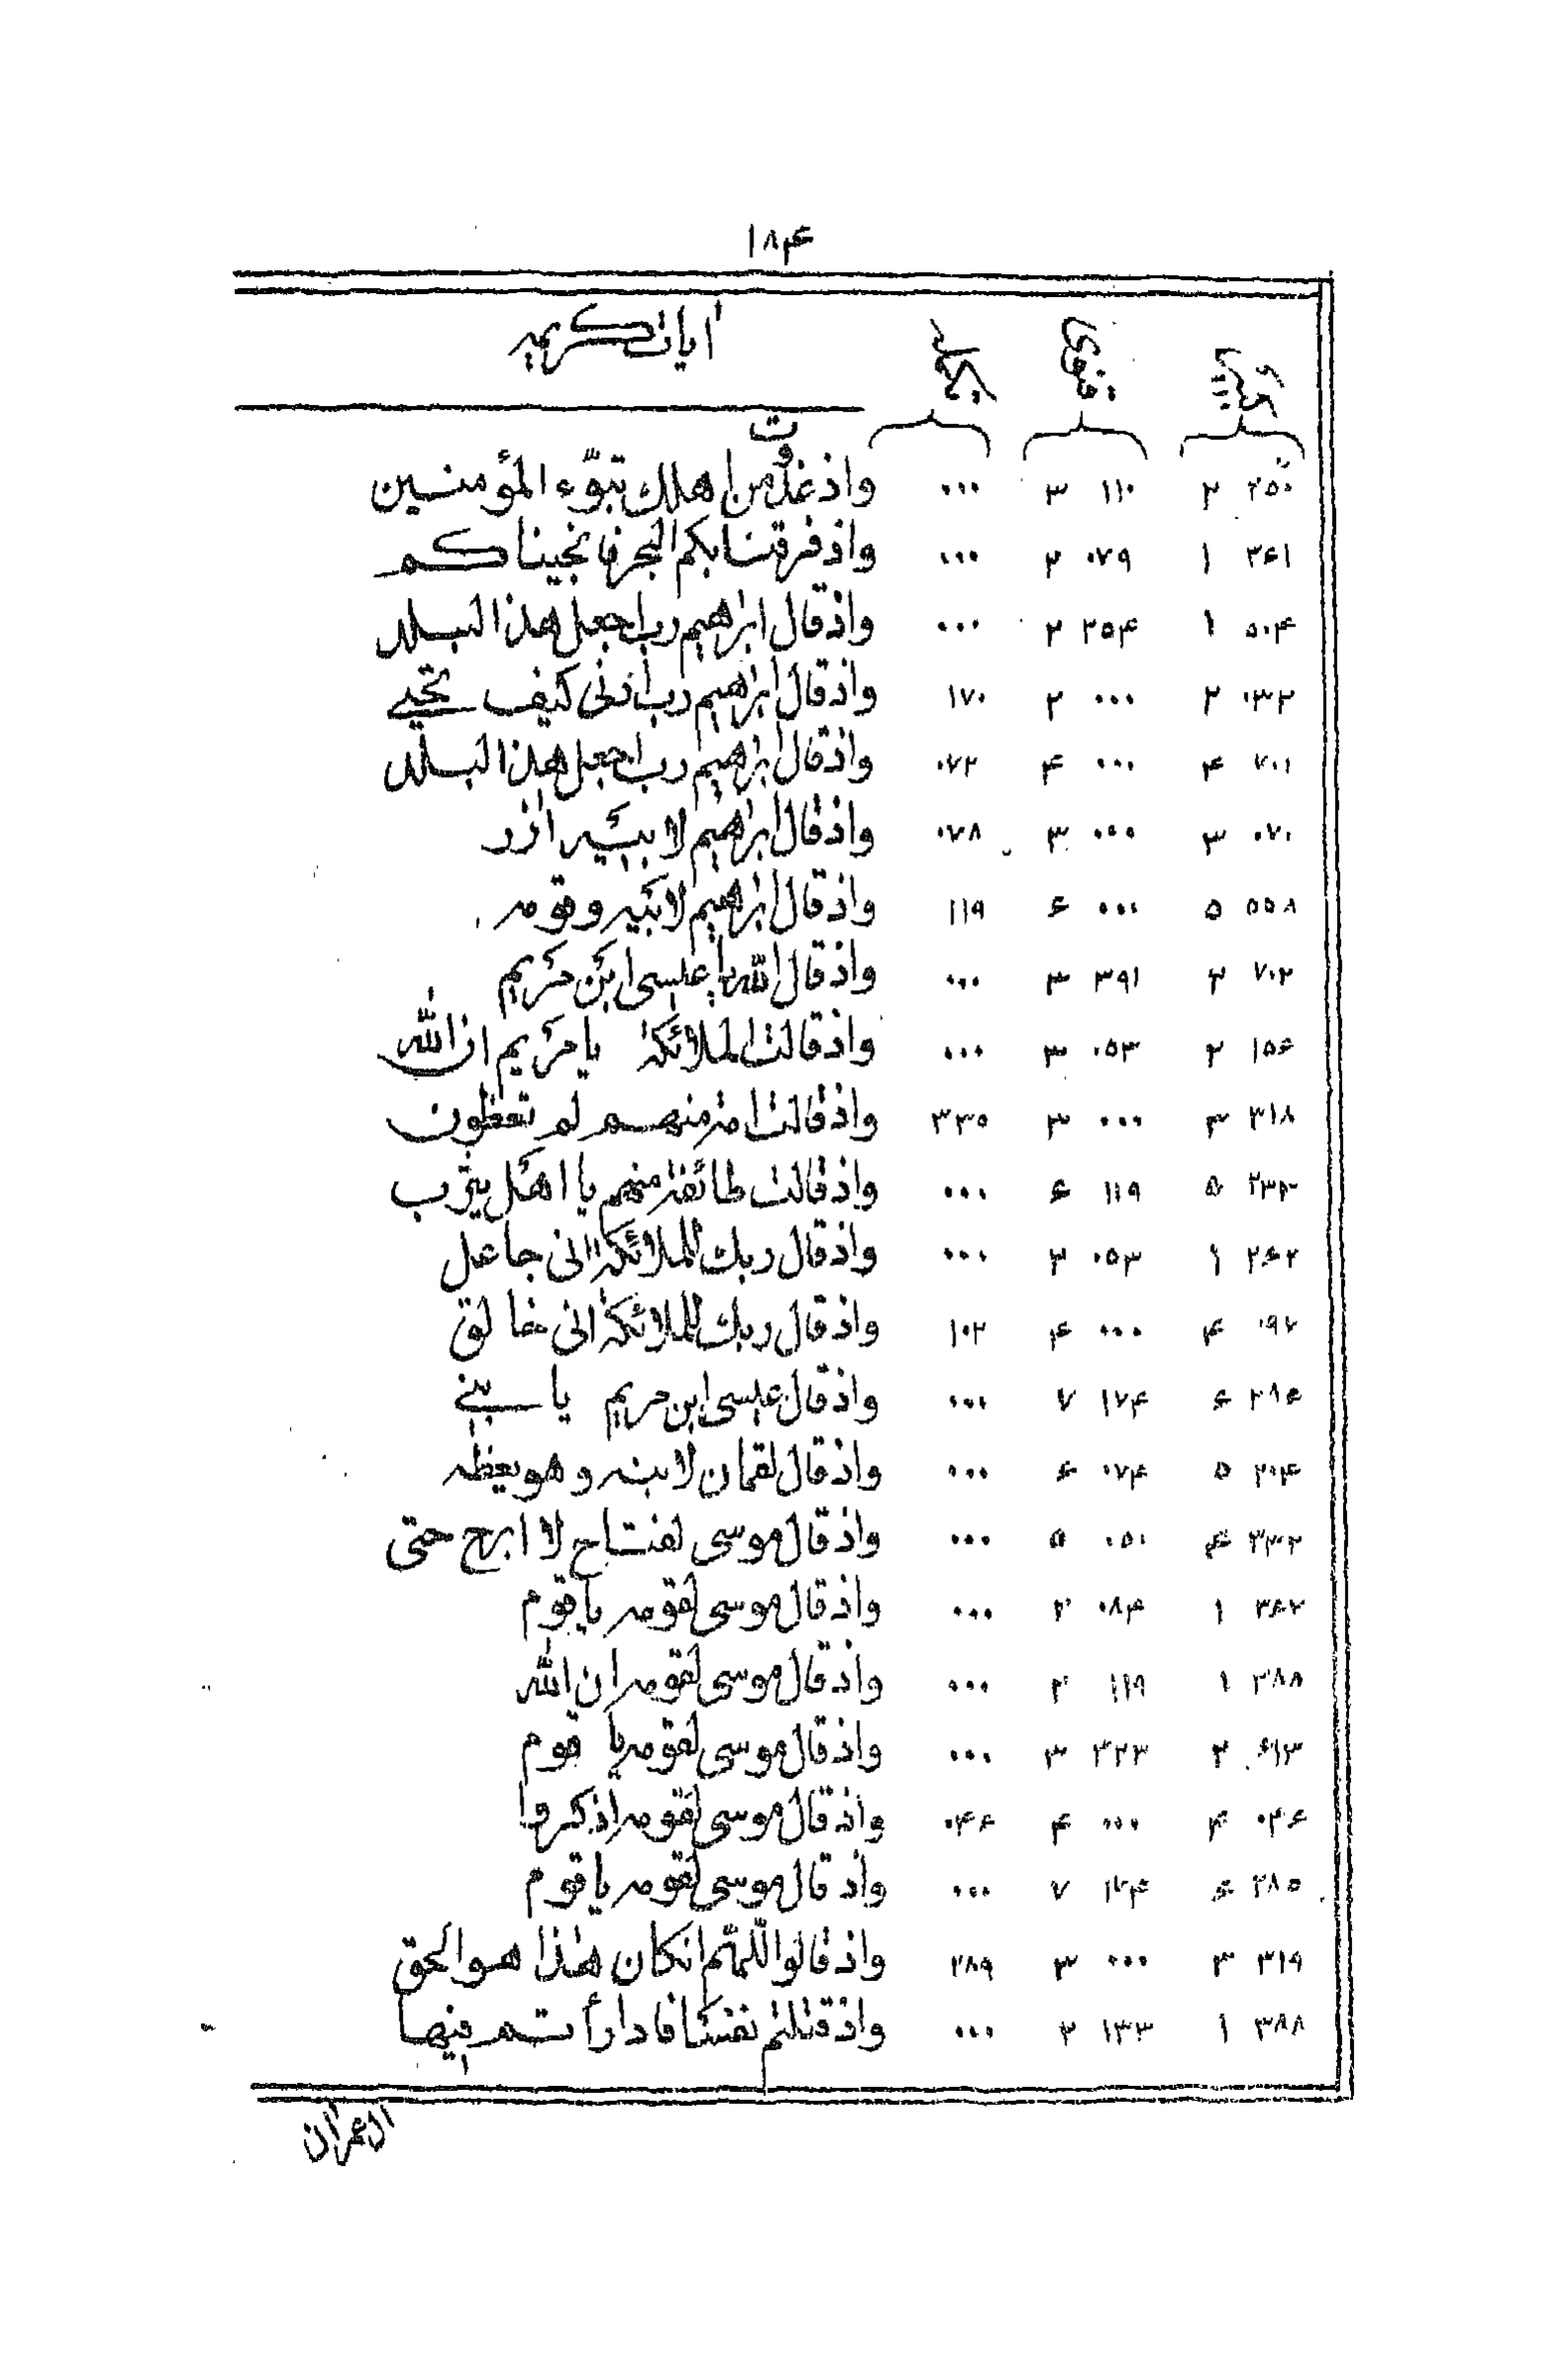 ۱۸۴
ایات کریمه
۲۵۰ ۲ ۱۱۰ ۳ ... واذ غدوت من اهلك تبوّء المؤمنین
۲۶۱ ۱ ۰۷۹ ۲ ... واذ فرقنا بکم البحر فانجیناکم
۵۰۴ ۱ ۲۵۴ ۲ ... واذ قال ابرٰهیم رب اجعل هذا البلد
۰۳۲ ۲ ... ۲ ۱۷۰ واذ قال ابرٰهیم رب ارنی کیف تحیی
۷۰۱ ۴ ... ۴ ۰۷۲ واذ قال ابرٰهیم رب اجعل هذا البلد
۰۷۰ ۳ ... ۳ ۰۷۸ واذ قال ابرٰهیم لابیه ازر
۵۵۸ ۵ ... ۶ ۱۱۹ واذ قال ابرٰهیم لابیه وقومه
۷۰۲ ۲ ۳۹۱ ۳ ... واذ قال الله یا عیسی ابن مریم
۱۵۶ ۲ ۰۵۳ ۳ ... واذ قالت الملائکة یا مریم ان الله
۳۱۸ ۳ ... ۳ ۳۳۵ واذ قالت امة منهم لم تعظون
۲۳۳ ۵ ۱۱۹ ۶ ... واذ قالت طائفة منهم یا اهل یثرب
۲۶۲ ۱ ۰۵۳ ۲ ... واذ قال ربك للملائکة انی جاعل
۰۹۷ ۴ ... ۴ ۱۰۲ واذ قال ربك للملائکة انی خالق
۲۸۶ ۶ ۱۷۴ ۷ ... واذ قال عیسی ابن مریم یا بنی
۲۰۴ ۵ ۰۷۴ ۶ ... واذ قال لقمان لابنه وهو یعظه
۳۳۲ ۴ ۰۵۰ ۵ ... واذ قال موسی لفتاه لا ابرح حتی
۳۸۷ ۱ ۰۸۴ ۲ ... واذ قال موسی لقومه یا قوم
۳۸۸ ۱ ۱۱۹ ۲ ... واذ قال موسی لقومه ان الله
۶۱۳ ۲ ۳۲۳ ۳ ... واذ قال موسی لقومه یا قوم
۰۴۶ ۴ ... ۴ ۰۴۶ واذ قال موسی لقومه اذکروا
۲۸۵ ۶ ۱۷۴ ۷ ... واذ قال موسی لقومه یا قوم
۳۱۹ ۳ ... ۳ ۲۸۹ واذ قالوا اللّٰهم انکان هٰذا هو الحق
۳۸۸ ۱ ۱۳۳ ۲ ... واذ قتلتم نفسا فادارأتم فیها
ال عمران